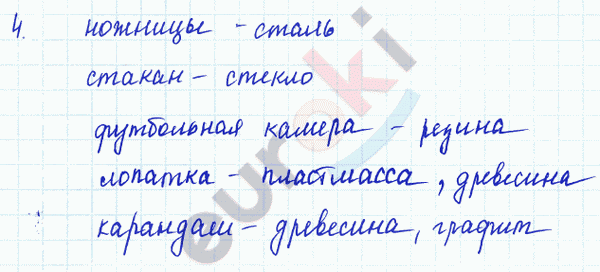 4. ножницы - сталь
стакан - стекло
футбольная камера - резина
лопатка - пластмасса, древесина
карандаш - древесина, графит
euroki